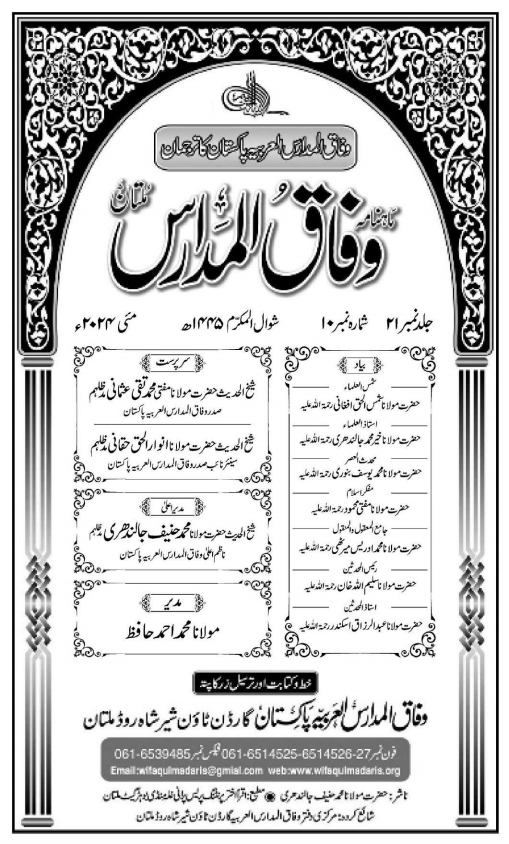 وفاق المدارس العربیہ پاکستان کا ترجمان
ماہنامہ
وفاق المدارس
ملتان
جلد نمبر ۲۱ شمارہ نمبر ۱۰ شوال المکرم ۱۴۴۵ھ مئی ۲۰۲۴ء
بیاد
شمس العلماء
حضرت مولانا شمس الحق افغانی رحمۃ اللہ علیہ
استاذ العلماء
حضرت مولانا خیر محمد جالندھری رحمۃ اللہ علیہ
محدث العصر
حضرت مولانا محمد یوسف بنوری رحمۃ اللہ علیہ
مفکر اسلام
حضرت مولانا مفتی محمود رحمۃ اللہ علیہ
جامع المعقول والمنقول
حضرت مولانا محمد ادریس میرٹھی رحمۃ اللہ علیہ
رئیس المحدثین
حضرت مولانا سلیم اللہ خان رحمۃ اللہ علیہ
استاذ المحدثین
حضرت مولانا عبدالرزاق اسکندر رحمۃ اللہ علیہ
سرپرست
شیخ الحدیث حضرت مولانا مفتی محمد تقی عثمانی مدظلہم
صدر وفاق المدارس العربیہ پاکستان
شیخ الحدیث حضرت مولانا انوار الحق حقانی مدظلہم
سینئر نائب صدر وفاق المدارس العربیہ پاکستان
مدیر اعلیٰ
شیخ الحدیث حضرت مولانا محمد حنیف جالندھری مدظلہم
ناظم اعلیٰ وفاق المدارس العربیہ پاکستان
مدیر
مولانا محمد احمد حافظ
خط و کتابت اور ترسیل زر کا پتہ
وفاق المدارس العربیہ پاکستان گارڈن ٹاؤن شیر شاہ روڈ ملتان
فون نمبر 27-6514526-6514525-061 فیکس نمبر 061-6539485
Email:wifaqulmadaris@gmial.com web:www.wifaqulmadaris.org
ناشر: حضرت مولانا محمد حنیف جالندھری مطبع: اقرأ اختر پرنٹنگ پریس پرانی غلہ منڈی دہلی گیٹ ملتان
شائع کردہ: مرکزی دفتر وفاق المدارس العربیہ گارڈن ٹاؤن شیر شاہ روڈ ملتان